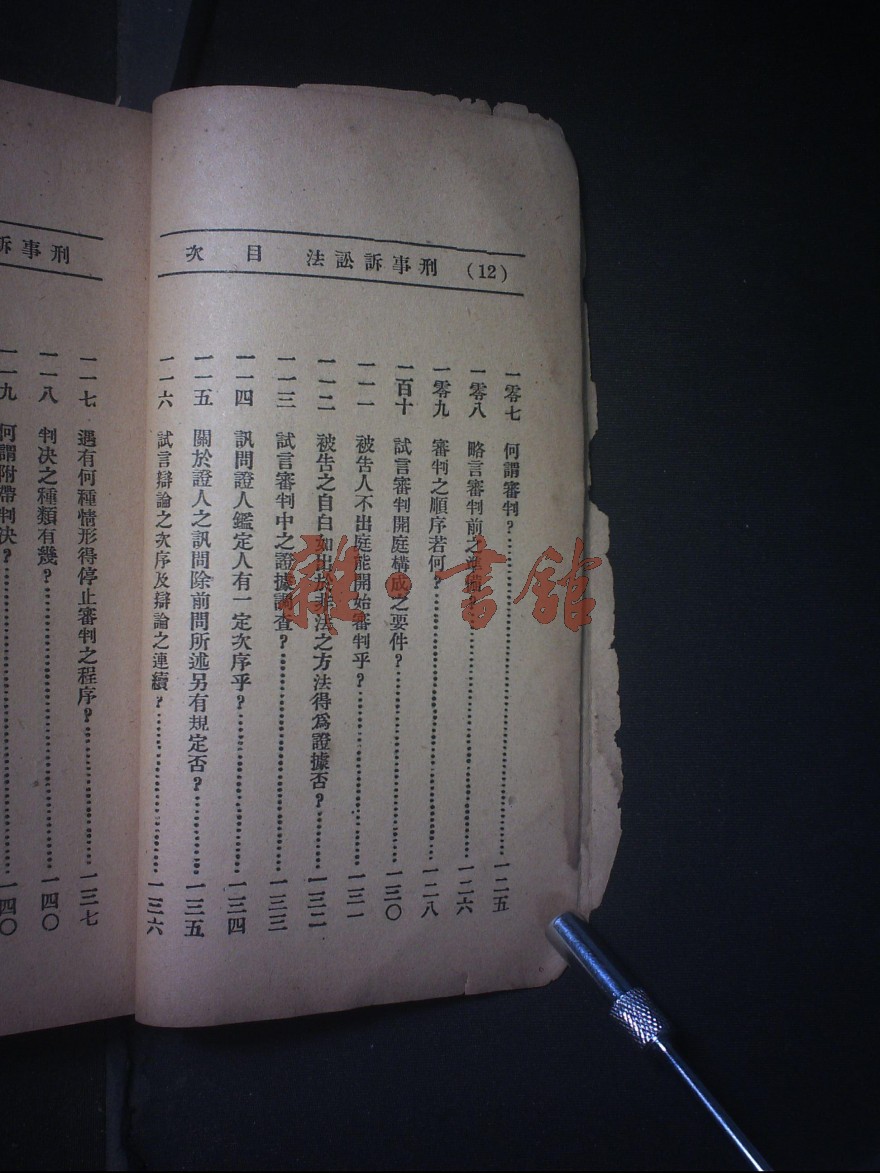 (12) 刑事訴訟法 目次
一零七 何謂審判?……一二五
一零八 略言審判前之準備?……一二六
一零九 審判之順序若何?……一二八
一百十 試言審判開庭構成之要件?……一三〇
一一一 被告人不出庭能開始審判乎?……一三一
一一二 被告之自白如出於非法之方法得爲證據否?……一三二
一一三 試言審判中之證據調查?……一三三
一一四 訊問證人鑑定人有一定次序乎?……一三四
一一五 關於證人之訊問除前問所述另有規定否?……一三五
一一六 試言辯論之次序及辯論之連續?……一三六
刑事訴
一一七 遇有何種情形得停止審判之程序?……一三七
一一八 判决之種類有幾?……一四〇
一一九 何謂附帶判决?……一四〇
雜·書館